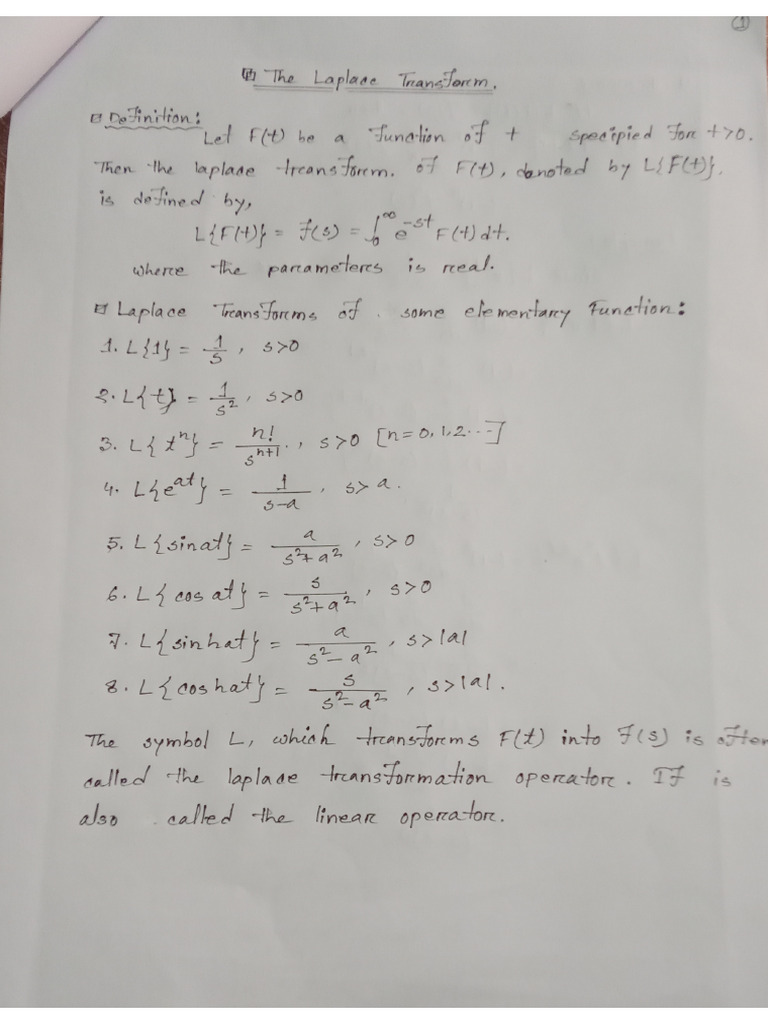 ①
The Laplace Transform.
Definition:
Let F(t) be a function of t specipied for t>0.
Then the laplace transform. of F(t), denoted by L{F(t)}.
is defined by,
L{F(t)} = f(s) = ∫₀^∞ e^-st F(t) dt.
where the parameters is real.
Laplace Transforms of. some elementary Function:
1. L{1} = 1/s, s>0
2. L{t} = 1/s², s>0
3. L{tⁿ} = n!/s^n+1., s>0 [n=0,1,2...]
4. L{e^at} = 1/s-a, s>a.
5. L{sinat} = a/s²+a², s>0
6. L{cos at} = s/s²+a², s>0
7. L{sinhat} = a/s²-a², s>|a|
8. L{coshat} = s/s²-a², s>|a|.
The symbol L, which transforms F(t) into f(s) is often
called the laplace transformation operator. If is
also . called the linear operator.